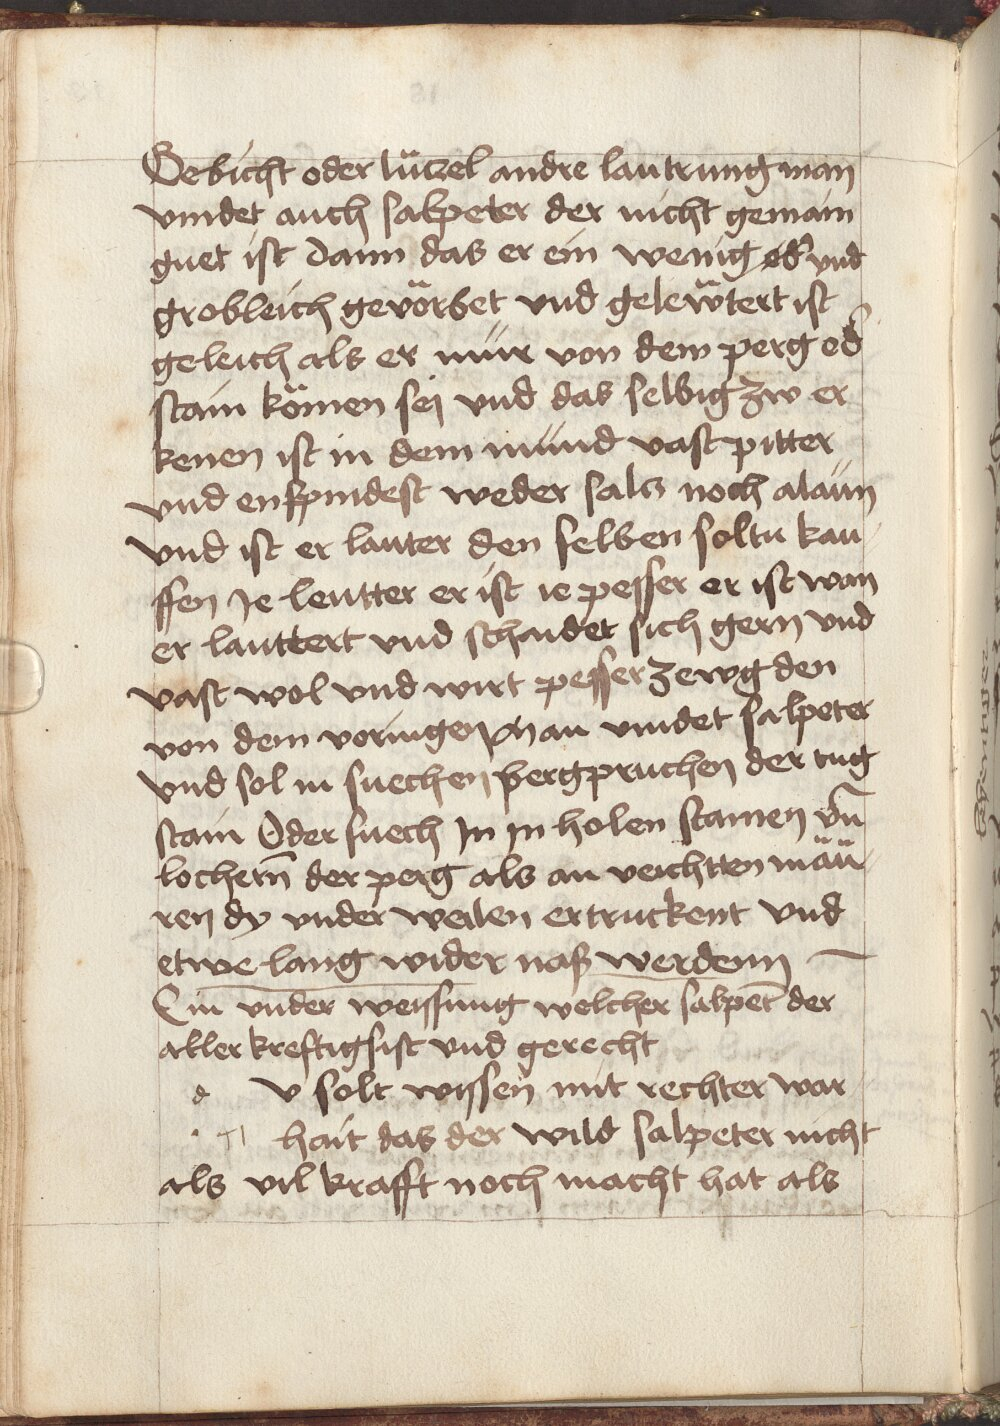 Gebicht oder lützel andre lautrung man
vindet auch salpeter der nicht gemain
guet ist dann das er ein wenig od̄ vnd
grobleich gevörbet vnd gelewtert ist
geleich als er nür von dem perg od̄
stain kömen sej vnd das selbig zw er
kenen ist in dem mund vast pitter
vnd enpfindest weder salcz noch alaün
vnd ist er lauter den selben soltu kau
ffen Je leutter er ist ie pesser er ist wan
er lauttert vnd schaidet sich gern vnd
vast wol vnd wirt pesser zewg den
von dem voringen Man vindet salpeter
vnd sol in suechen bergpruchen der tug
stain Oder suech In in holen stainen vn̄
lochern̄ der perg als an veichtten mäü
ren dy vnder weilen ertruckent vnd
etwe lang wider naß werdenn
Ein vnder weissung welcher salpet̄ der
aller kreftigsist vnd gerecht
d v solt wissen mit rechter war
hait das der wild salpeter nicht
als vil krafft noch macht hat als